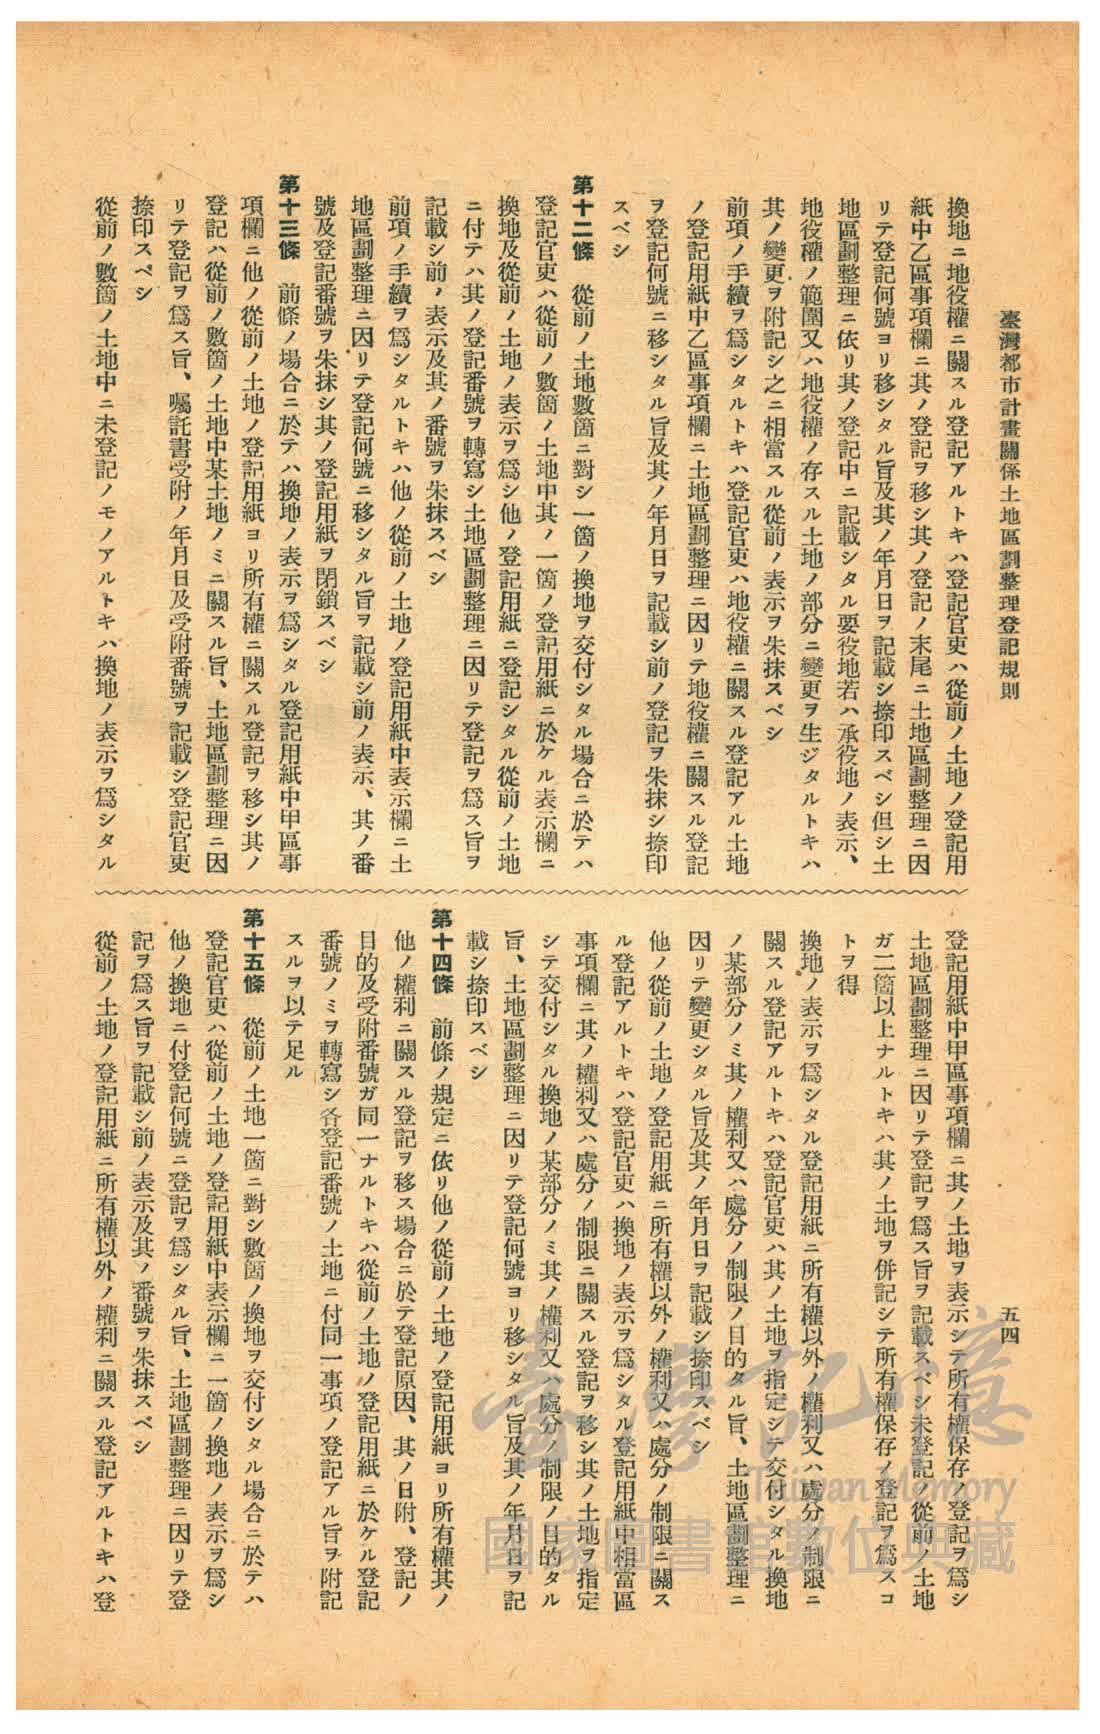 臺灣都市計畫關係土地區劃整理登記規則
五四
換地ニ地役權ニ關スル登記アルトキハ登記官吏ハ從前ノ土地ノ登記用
紙中乙區事項欄ニ其ノ登記ヲ移シ其ノ登記ノ末尾ニ土地區劃整理ニ因
リテ登記何號ヨリ移シタル旨及其ノ年月日ヲ記載シ捺印スベシ但シ土
地區劃整理ニ依リ其ノ登記中ニ記載シタル要役地若ハ承役地ノ表示、
地役權ノ範圍又ハ地役權ノ存スル土地ノ部分ニ變更ヲ生ジタルトキハ
其ノ變更ヲ附記シ之ニ相當スル從前ノ表示ヲ朱抹スベシ
前項ノ手續ヲ爲シタルトキハ登記官吏ハ地役權ニ關スル登記アル土地
ノ登記用紙中乙區事項欄ニ土地區劃整理ニ因リテ地役權ニ關スル登記
ヲ登記何號ニ移シタル旨及其ノ年月日ヲ記載シ前ノ登記ヲ朱抹シ捺印
スベシ
第十二條　從前ノ土地數箇ニ對シ一箇ノ換地ヲ交付シタル場合ニ於テハ
登記官吏ハ從前ノ數箇ノ土地中其ノ一箇ノ登記用紙ニ於ケル表示欄ニ
換地及從前ノ土地ノ表示ヲ爲シ他ノ登記用紙ニ登記シタル從前ノ土地
ニ付テハ其ノ登記番號ヲ轉寫シ土地區劃整理ニ因リテ登記ヲ爲ス旨ヲ
記載シ前ノ表示及其ノ番號ヲ朱抹スベシ
前項ノ手續ヲ爲シタルトキハ他ノ從前ノ土地ノ登記用紙中表示欄ニ土
地區劃整理ニ因リテ登記何號ニ移シタル旨ヲ記載シ前ノ表示、其ノ番
號及登記番號ヲ朱抹シ其ノ登記用紙ヲ閉鎖スベシ
第十三條　前條ノ場合ニ於テハ換地ノ表示ヲ爲シタル登記用紙中甲區事
項欄ニ他ノ從前ノ土地ノ登記用紙ヨリ所有權ニ關スル登記ヲ移シ其ノ
登記ハ從前ノ數箇ノ土地中某土地ノミニ關スル旨、土地區劃整理ニ因
リテ登記ヲ爲ス旨、囑託書受附ノ年月日及受附番號ヲ記載シ登記官吏
捺印スペシ
從前ノ數箇ノ土地中ニ未登記ノモノアルトキハ換地ノ表示ヲ爲シタル
登記用紙中甲區事項欄ニ其ノ土地ヲ表示シテ所有權保存ノ登記ヲ爲シ
土地區劃整理ニ因リテ登記ヲ爲ス旨ヲ記載スベシ未登記ノ從前ノ土地
ガ二箇以上ナルトキハ其ノ土地ヲ併記シテ所有權保存ノ登記ヲ爲スコ
トヲ得
換地ノ表示ヲ爲シタル登記用紙ニ所有權以外ノ權利又ハ處分ノ制限ニ
關スル登記アルトキハ登記官吏ハ其ノ土地ヲ指定シテ交付シタル換地
ノ某部分ノミ其ノ權利又ハ處分ノ制限ノ目的タル旨、土地區劃整理ニ
因リテ變更シタル旨及其ノ年月日ヲ記載シ捺印スベシ
他ノ從前ノ土地ノ登記用紙ニ所有權以外ノ權利又ハ處分ノ制限ニ關ス
ル登記アルトキハ登記官吏ハ換地ノ表示ヲ爲シタル登記用紙中相當區
事項欄ニ其ノ權利又ハ處分ノ制限ニ關スル登記ヲ移シ其ノ土地ヲ指定
シテ交付シタル換地ノ某部分ノミ其ノ權利又ハ處分ノ制限ノ目的タル
旨、土地區劃整理ニ因リテ登記何號ヨリ移シタル旨及其ノ年月日ヲ記
載シ捺印スベシ
第十四條　前條ノ規定ニ依リ他ノ從前ノ土地ノ登記用紙ヨリ所有權其ノ
他ノ權利ニ關スル登記ヲ移ス場合ニ於テ登記原因、其ノ日附、登記ノ
目的及受附番號ガ同一ナルトキハ從前ノ土地ノ登記用紙ニ於ケル登記
番號ノミヲ轉寫シ各登記番號ノ土地ニ付同一事項ノ登記アル旨ヲ附記
スルヲ以テ足ル
第十五條　從前ノ土地一箇ニ對シ數箇ノ換地ヲ交付シタル場合ニ於テハ
登記官吏ハ從前ノ土地ノ登記用紙中表示欄ニ一箇ノ換地ノ表示ヲ爲シ
他ノ換地ニ付登記何號ニ登記ヲ爲シタル旨、土地區劃整理ニ因リテ登
記ヲ爲ス旨ヲ記載シ前ノ表示及其ノ番號ヲ朱抹スベシ
從前ノ土地ノ登記用紙ニ所有權以外ノ權利ニ關スル登記アルトキハ登
臺灣記憶
Taiwan Memory
國家圖書館數位典藏